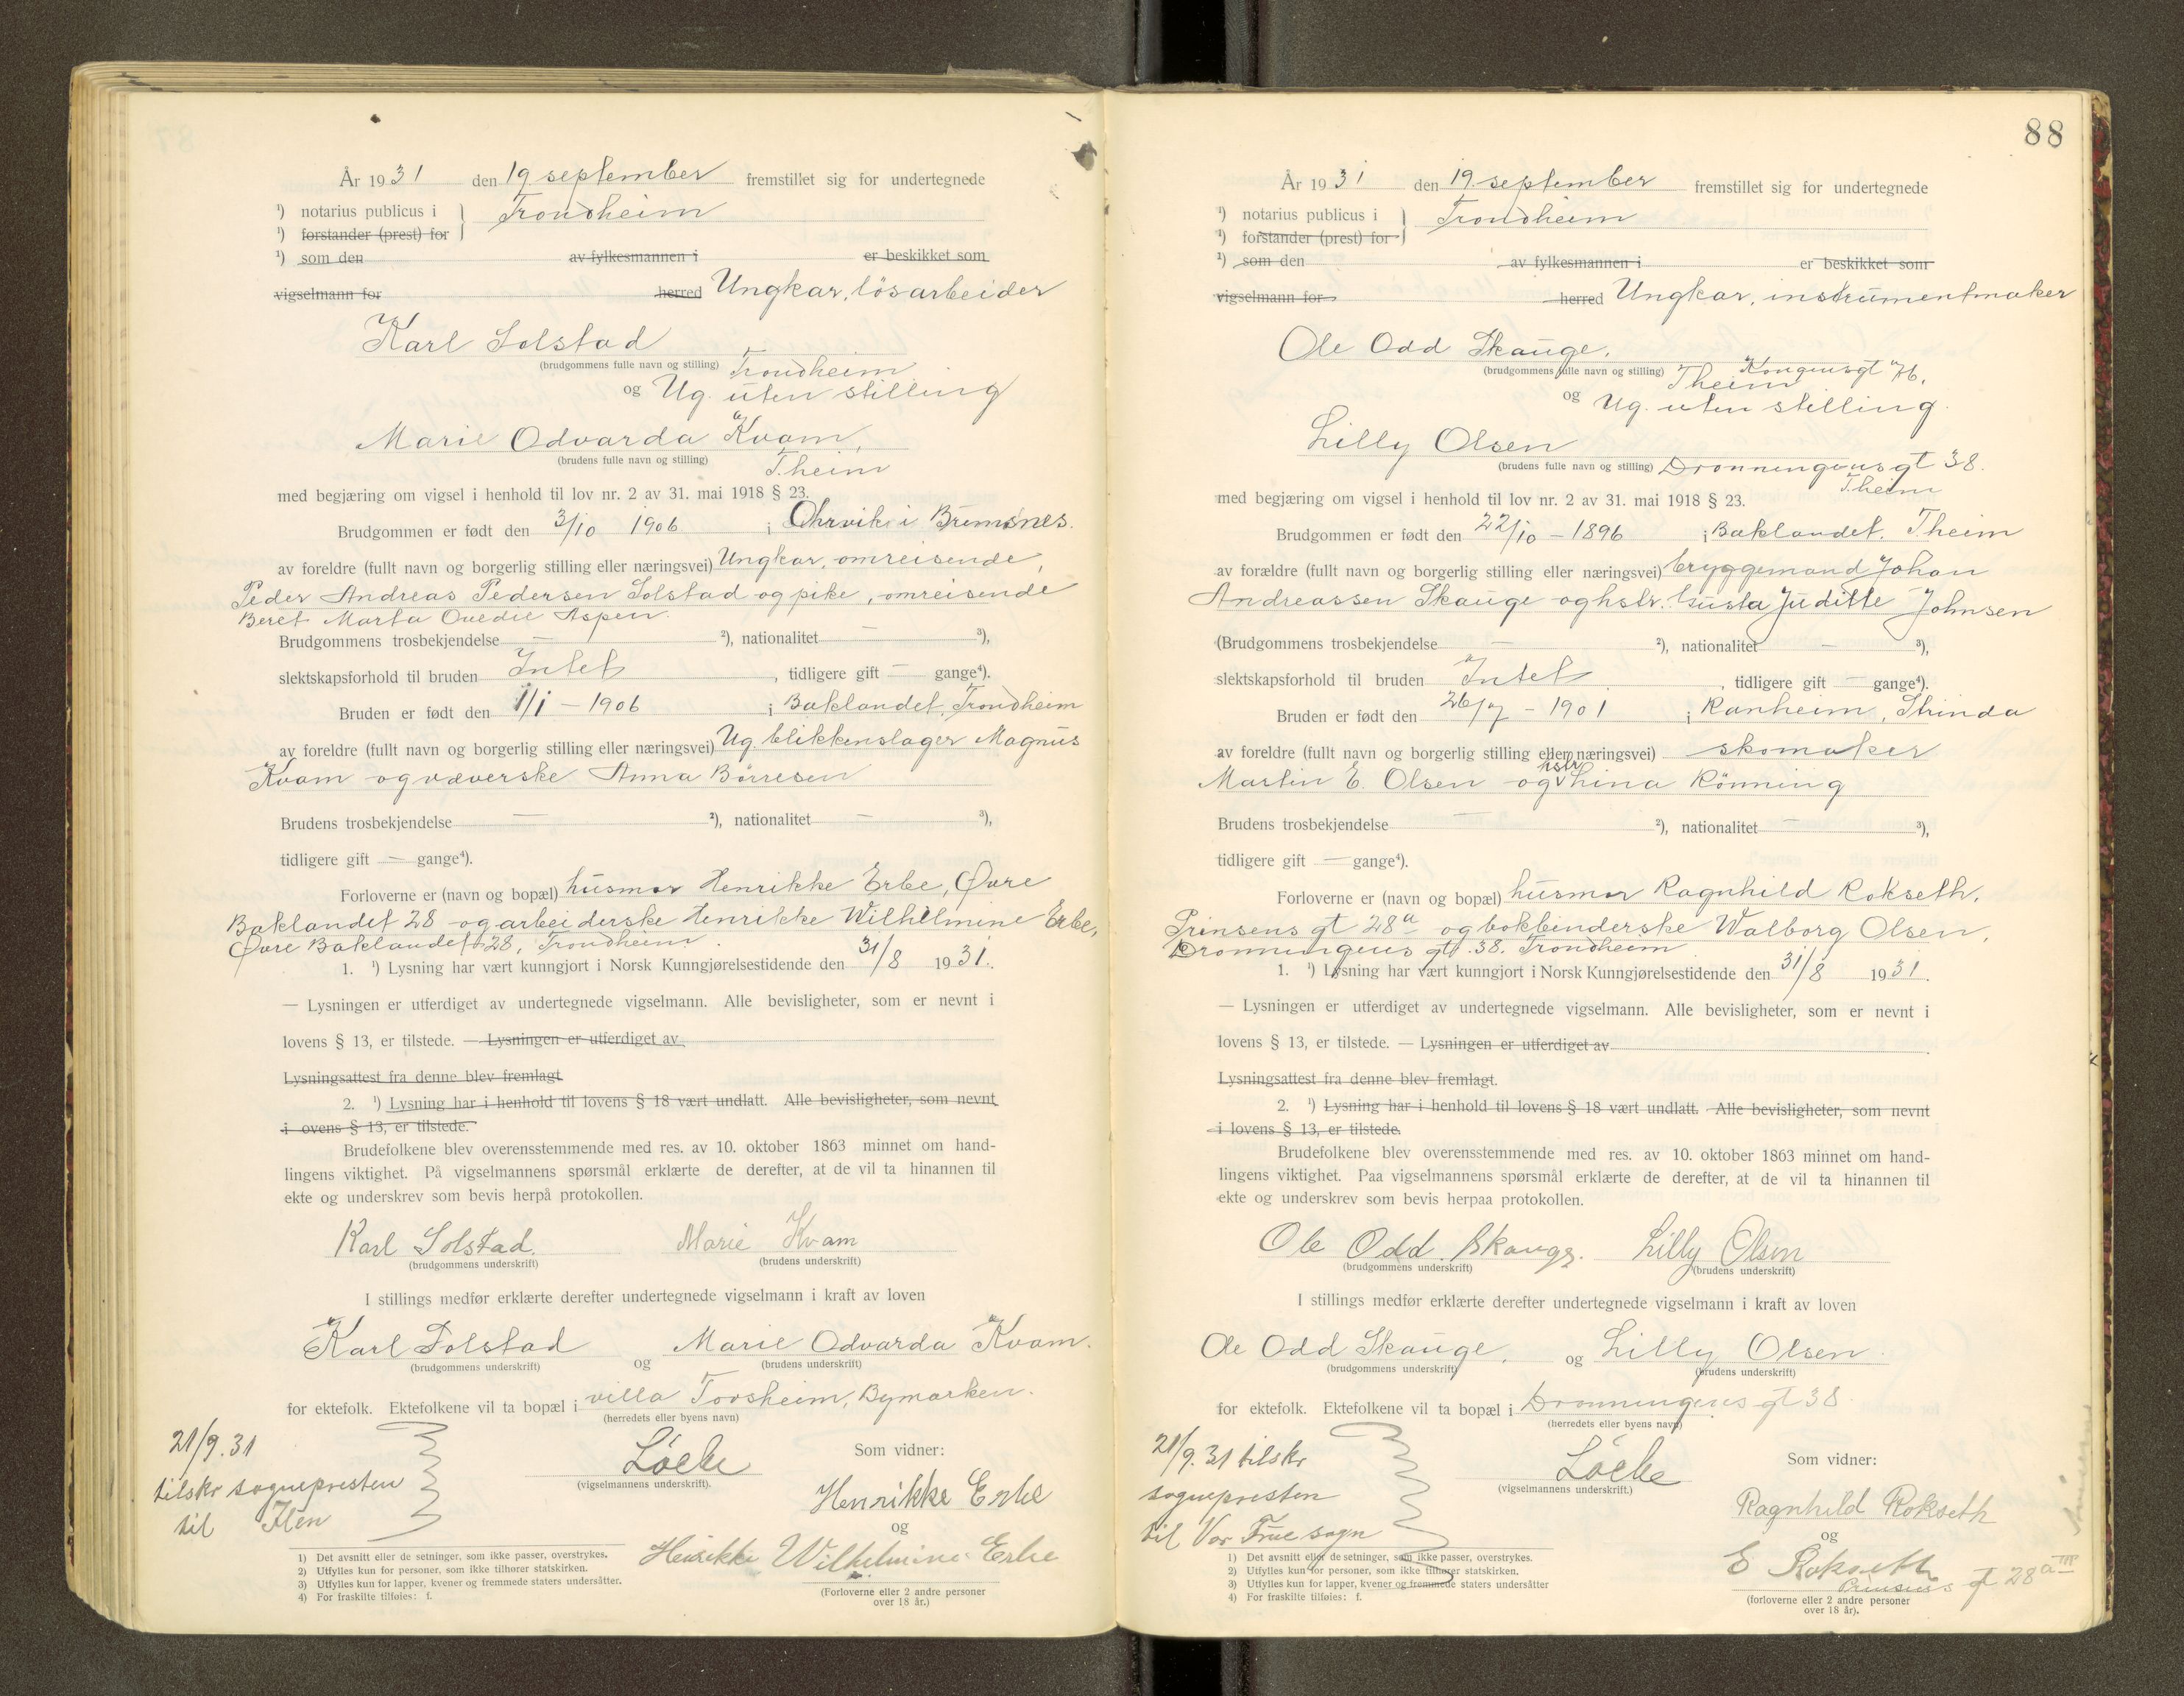 År 1931 den 19. september fremstillet sig for undertegnede
¹) notarius publicus i } Trondheim
¹) forstander (prest) for
¹) som den av fylkesmannen i er beskikket som
vigselmann for herred Ungkar, lösarbeider
Karl Solstad
(brudgommens fulle navn og stilling) Trondheim
og Ug. uten stilling
Marie Odvarda Kvam,
(brudens fulle navn og stilling) T.heim
med begjæring om vigsel i henhold til lov nr. 2 av 31. mai 1918 § 23.
Brudgommen er født den 3/10 1906 i Ohrvik i Bremsnes.
av foreldre (fullt navn og borgerlig stilling eller næringsvei) Ungkar, omreisende,
Peder Andreas Pedersen Solstad og pike, omreisende
Beret Marta Ovedie Aspen.
Brudgommens trosbekjendelse — ²), nationalitet — ³),
slektskapsforhold til bruden Intet, tidligere gift — gange⁴).
Bruden er født den 1/1 – 1906 i Baklandet, Trondheim
av foreldre (fullt navn og borgerlig stilling eller næringsvei) Ug. blikkenslager Magnus
Kvam og væverske Anna Börresen
Brudens trosbekjendelse — ²), nationalitet — ³),
tidligere gift — gange⁴).
Forloverne er (navn og bopæl) husmor Henrikke Erbe, Øvre
Baklandet 28 og arbeiderske Henrikke Wilhelmine Erbe,
Øvre Baklandet 28, Trondheim.
1. ¹) Lysning har vært kunngjort i Norsk Kunngjørelsestidende den 31/8 1931.
— Lysningen er utferdiget av undertegnede vigselmann. Alle bevisligheter, som er nevnt i
lovens § 13, er tilstede. — Lysningen er utferdiget av
Lysningsattest fra denne blev fremlagt
2. ¹) Lysning har i henhold til lovens § 18 vært undlatt. Alle bevisligheter, som nevnt
i ovens § 13, er tilstede.
Brudefolkene blev overensstemmende med res. av 10. oktober 1863 minnet om hand-
lingens viktighet. På vigselmannens spørsmål erklærte de derefter, at de vil ta hinannen til
ekte og underskrev som bevis herpå protokollen.
Karl Solstad. Marie Kvam
(brudgommens underskrift) (brudens underskrift)
I stillings medfør erklærte derefter undertegnede vigselmann i kraft av loven
Karl Solstad og Marie Odvarda Kvam.
(brudgommens underskrift) (brudens underskrift)
for ektefolk. Ektefolkene vil ta bopæl i villa Torsheim, Bymarken.
(herredets eller byens navn)
21/9.31
tilskr sognepresten
til Ilen
(vigselmannens underskrift).
Som vidner:
Henrikke Erbe
og
Henrikke Wilhelmine Erbe
(Forloverne eller 2 andre personer
over 18 år.)
1) Det avsnitt eller de setninger, som ikke passer, overstrykes.
2) Utfylles kun for personer, som ikke tilhører statskirken.
3) Utfylles kun for lapper, kvener og fremmede staters undersåtter.
4) For fraskilte tilføies: f.
88
År 1931 den 19. september fremstillet sig for undertegnede
¹) notarius publicus i } Trondheim
¹) forstander (prest) for
¹) som den av fylkesmannen i er beskikket som
vigselmann for herred Ungkar, instrumentmaker
Ole Odd Skauge,
(brudgommens fulle navn og stilling) Kongensgt 76,
T.heim
og Ug. uten stilling.
Lilly Olsen
(brudens fulle navn og stilling) Dronningens gt 38.
T.heim
med begjæring om vigsel i henhold til lov nr. 2 av 31. mai 1918 § 23.
Brudgommen er født den 22/10 – 1896 i Baklandet. T.heim
av forældre (fullt navn og borgerlig stilling eller næringsvei) bryggemand Johan
Andreassen Skauge og hstr. Gusta Juditte Johnsen
(Brudgommens trosbekjendelse — ²), nationalitet — ³),
slektskapsforhold til bruden Intet, tidligere gift — gange⁴).
Bruden er født den 26/7 – 1901 i Ranheim, Strinda
av foreldre (fullt navn og borgerlig stilling eller næringsvei) skomaker
Martin E. Olsen og hstr Lina Rönning
Brudens trosbekjendelse — ²), nationalitet — ³),
tidligere gift — gange⁴).
Forloverne er (navn og bopæl) husmor Ragnhild Rokseth,
Prinsens gt 28a og bokbinderske Walborg Olsen,
Dronningens gt. 38. Trondheim
1. ¹) Lysning har vært kunngjort i Norsk Kunngjørelsestidende den 31/8 1931.
— Lysningen er utferdiget av undertegnede vigselmann. Alle bevisligheter, som er nevnt i
lovens § 13, er tilstede. — Lysningen er utferdiget av
Lysningsattest fra denne blev fremlagt.
2. ¹) Lysning har i henhold til lovens § 18 vært undlatt. Alle bevisligheter, som nevnt
i lovens § 13, er tilstede.
Brudefolkene blev overensstemmende med res. av 10. oktober 1863 minnet om hand-
lingens viktighet. Paa vigselmannens spørsmål erklærte de derefter, at de vil ta hinannen til
ekte og underskrev som bevis herpaa protokollen.
Ole Odd Skauge. Lilly Olsen
(brudgommens underskrift) (brudens underskrift)
I stillings medfør erklærte derefter undertegnede vigselmann i kraft av loven
Ole Odd Skauge, og Lilly Olsen.
(brudgommens underskrift) (brudens underskrift)
for ektefolk. Ektefolkene vil ta bopæl i Dronningens gt 38
(herredets eller byens navn)
21/9.31 tilskr
sognepresten
til Vor Frue sogn
(vigselmannens underskrift.)
Som vidner:
Ragnhild Rokseth
og
E Rokseth
Prinsens gt 28a III
(forloverne eller 2 andre personer
over 18 år).
1) Det avsnitt eller de setninger, som ikke passer, overstrykes.
2) Utfylles kun for personer, som ikke tilhører statskirken.
3) Utfylles kun for lapper, kvener og fremmede staters undersåtter
4) For fraskilte tilføies: f.